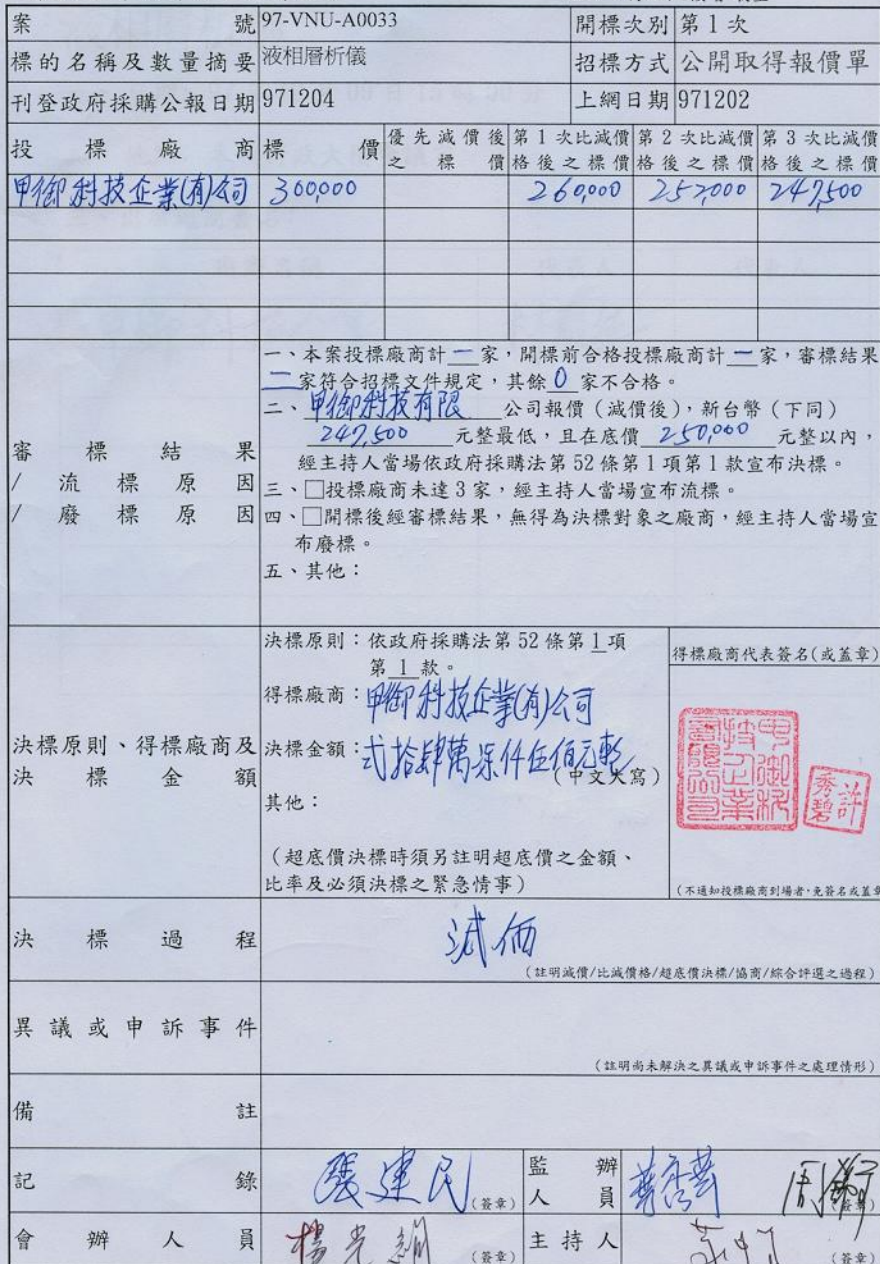 案號 97-VNU-A0033 開標次別 第 1 次
標的名稱及數量摘要 液相層析儀 招標方式 公開取得報價單
刊登政府採購公報日期 971204 上網日期 971202
投標廠商 標價 優先減價後之標價 第 1 次比減價格後之標價 第 2 次比減價格後之標價 第 3 次比減價格後之標價
甲御科技企業(有)公司 300,000 260,000 252,000 247,500
審標結果
/流標原因
/廢標原因
一、本案投標廠商計 一 家,開標前合格投標廠商計 一 家,審標結果
二 家符合招標文件規定,其餘 0 家不合格。
二、甲御科技有限 公司報價(減價後),新台幣(下同)
247,500 元整最低,且在底價 250,000 元整以內,
經主持人當場依政府採購法第 52 條第 1 項第 1 款宣布決標。
三、□投標廠商未達 3 家,經主持人當場宣布流標。
四、□開標後經審標結果,無得為決標對象之廠商,經主持人當場宣
布廢標。
五、其他:
決標原則、得標廠商及
決標金額
決標原則:依政府採購法第 52 條第 1 項
第 1 款。
得標廠商:甲御科技企業(有)公司
決標金額:式拾肆萬柒仟伍佰元整
(中文大寫)
其他:
(超底價決標時須另註明超底價之金額、
比率及必須決標之緊急情事)
得標廠商代表簽名(或蓋章)
甲御科
技企業
有限公司
許
秀碧
(不通知投標廠商到場者,免簽名或蓋章
決標過程 減価
(註明減價/比減價格/超底價決標/協商/綜合評選之過程)
異議或申訴事件
(註明尚未解決之異議或申訴事件之處理情形)
備註
記錄 張建民 (簽章) 監辦人員 (簽章)
會辦人員 (簽章) 主持人 (簽章)